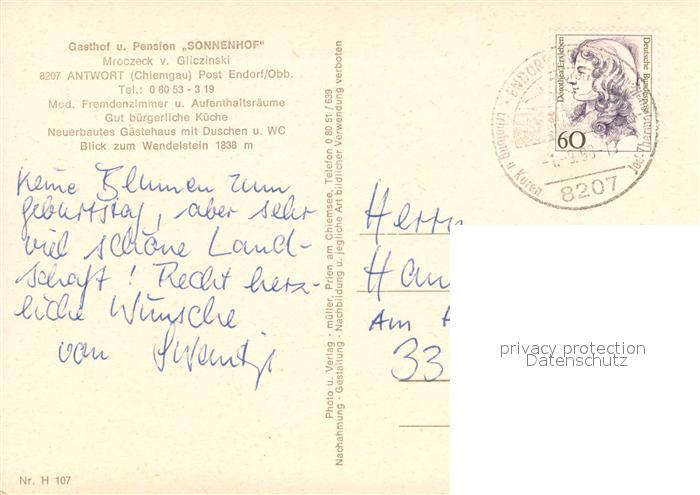 Gasthof u. Pension „SONNENHOF"
Mroczeck v. Gliczinski
8207 ANTWORT (Chiemgau) Post Endorf/Obb.
Tel.: 0 80 53 - 3 19
Mod. Fremdenzimmer u. Aufenthaltsräume
Gut bürgerliche Küche
Neuerbautes Gästehaus mit Duschen u. WC
Blick zum Wendelstein 1838 m
Keine Blumen zum
Geburtstag, aber sehr
viel schöne Land-
schaft! Recht herz-
liche Wünsche
von
Nr. H 107
Photo u. Verlag · müller, Prien am Chiemsee, Telefon 0 80 51 / 639
Nachahmung · Gestaltung · Nachbildung u. jegliche Art bildlicher Verwendung verboten
Dorothea Erxleben
Deutsche Bundespost
60
ENDORF
u Kuren
8207
Herrn
Han
Am
33
privacy protection
Datenschutz